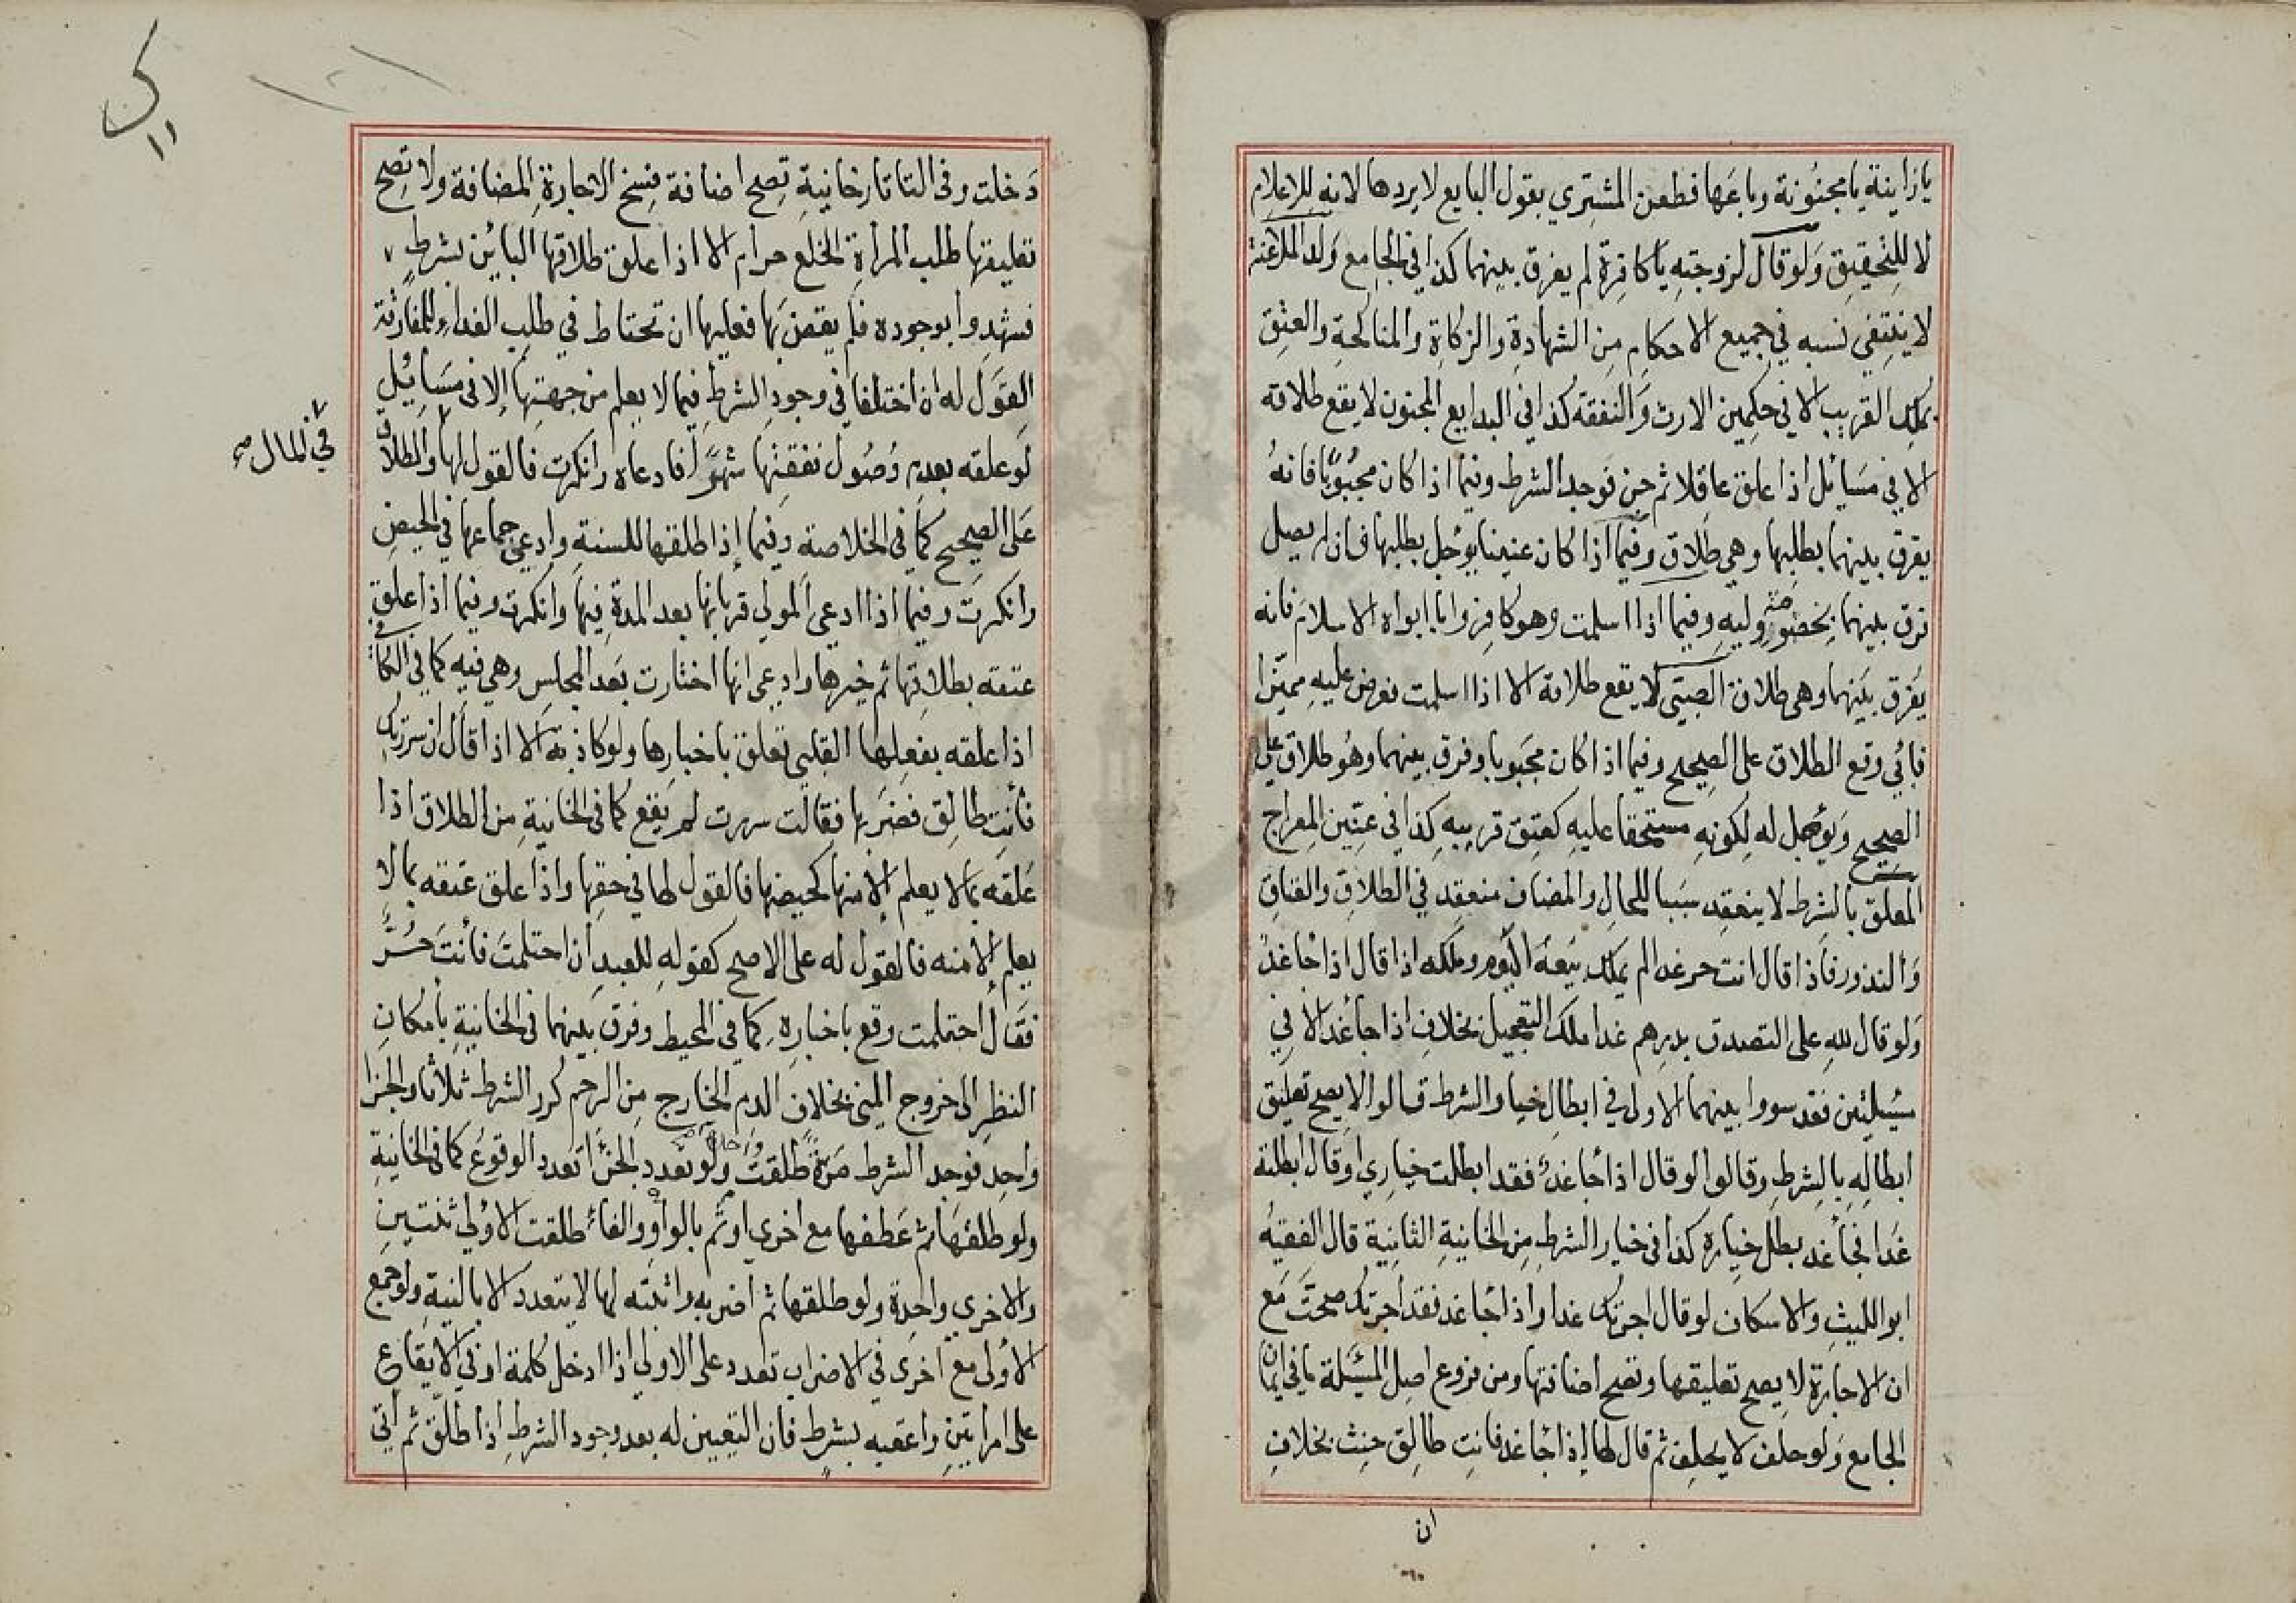 يا زاينة يا مجنونة وباعها فطعن المشتري بقول البايع لا يردها لانه للاعلام
لا للتحقيق ولو قال لزوجته يا كافرة لم يفرق بينهما كذا في الجامع ولد الملاعنة
لا ينتفي نسبه في جميع الاحكام من الشهادة والزكاة والمناكحة والعتق
بملك القريب الا في حكمين الارث والنفقة كذا في البدايع المجنون لا يقع طلاقه
الا في مسائل اذا علق عاقلا ثم جن فوجد الشرط وفيما اذا كان مجبوبا فانه
يفرق بينهما بطلبها وهي طلاق وفيما اذا كان عنينا يؤجل بطلبها فان لم يصل
فرق بينهما بحضور وليه وفيما اذا اسلمت وهو كافر وابا ابواه الاسلام فانه
يفرق بينهما وهي طلاق الصبي لا يقع طلاقه الا اذا اسلمت فعرض عليه مميزا
فابي وقع الطلاق على الصحيح وفيما اذا كان مجبوبا وفرق بينهما وهو طلاق على
الصحيح ويؤجل له لكونه مستحقا عليه كعتق قريبه كذا في عنين المعراج
المعلق بالشرط لا ينعقد سببا للحال والمضاف منعقد في الطلاق والعتاق
والنذور فاذا قال انت حر غدا لم يملك بيعه اليوم وملكه اذا قال اذا جا غد
ولو قال لله على التصدق بدرهم غدا ملك التعجيل بخلاف اذا جا غد الا في
مسئلتين فقد سووا بينهما الاولى في ابطال خيار الشرط قالوا لا يصح تعليق
ابطاله بالشرط وقالوا لو قال اذا جا غد فقد ابطلت خياري او قال ابطلته
غدا فجا غد بطل خياره كذا في خيار الشرط من الخانية الثانية قال الفقيه
ابو الليث والاسكاف لو قال اجرتك غدا او اذا جا غد فقد اجرتك صحت مع
ان الاجارة لا يصح تعليقها وتصح اضافتها ومن فروع اصل المسئلة ما في ايمان
الجامع ولو حلف لا يحلف ثم قال لها اذا جا غد فانت طالق حنث بخلاف
ان
دخلت وفي التاتارخانية تصح اضافة فسخ الاجارة المضافة ولا تصح
تعليقها طلب المرأة الخلع حرام الا اذا علق طلاقها البائن بشرط
فشهدوا بوجوده فلم يقض بها فعليها ان تحتاط في طلب الفداء للمفارقة
القول له ان اختلفا في وجود الشرط فيما لا يعلم من جهتها الا في مسائل
لو علقه بعدم وصول نفقتها شهرا فادعاه وانكرت فالقول لها والطلاق
في المال صح
على الصحيح كما في الخلاصة وفيما اذا طلقها للسنة وادعى جماعها في الحيض
وانكرت وفيما اذا ادعى المولى قربانها بعد المدة فيها وانكرت وفيما اذا علق
عتقه بطلاقها ثم خيرها وادعى انها اختارت بعد المجلس وهي فيه كما في الكافي
اذا علقه بفعلها القلبي تعلق باخبارها ولو كاذبة الا اذا قال ان سررتك
فأنت طالق فضربها فقالت سررت لم يقع كما في الخانية من الطلاق اذا
علقه بما لا يعلم الا منها كحيضها فالقول لها في حقها واذا علق عتقه بما لا
يعلم الا منه فالقول له على الاصح كقوله للعبد ان احتلمت فأنت حر
فقال احتلمت وقع باخباره كما في المحيط وفرق بينهما في الخانية بامكان
النظر الى خروج المني بخلاف الدم الخارج من الرحم كرر الشرط ثلاثا والجزا
واحد فوجد الشرط مرة طلقت واحدة ولو تعدد الجزا تعدد الوقوع كما في الخانية
ولو طلقها ثم عطفها مع اخرى او ثم بالواو والفاء طلقت الاولى ثنتين
والاخرى واحدة ولو طلقها ثم اضرب واثبته لها لا يتعدد الا بالنية ولو جمع
الاولى مع اخرى في الاضراب تعدد على الاولى اذا ادخل كلمة او في الايقاع
على امرأتين واعقبه بشرط فان التعيين له بعد وجود الشرط اذا طلق ثم أتى